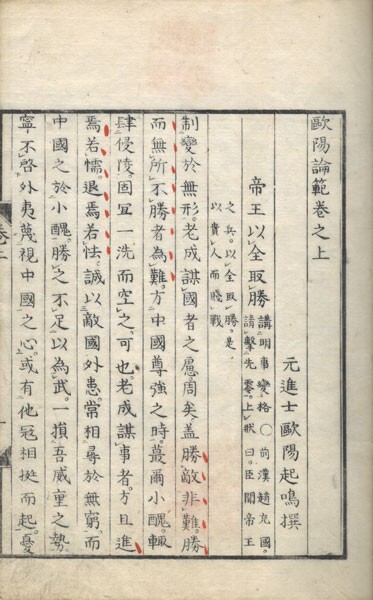 歐陽論範卷之上
元進士歐陽起鳴撰
帝王以全取勝
講明事變格○前漢趙充國。
請擊先零。上狀曰。臣聞帝王
之兵。以全取勝。是
以貴人而賤戰
制變於無形。老成謀國者之慮周矣。盖勝敵非難。勝
而無所不勝者為難。方中國尊強之時。蕞爾小醜。輒
肆侵陵。固宜一洗而空之。可也。老成謀事者。方且進
焉若懦。退焉若怯。誠以敵國外患。常相尋於無窮。而
中國之於小醜。勝之不足以為武。一損吾威重之勢。
寧不啓外夷蔑視中國之心。或有他冦相挻而起。憂